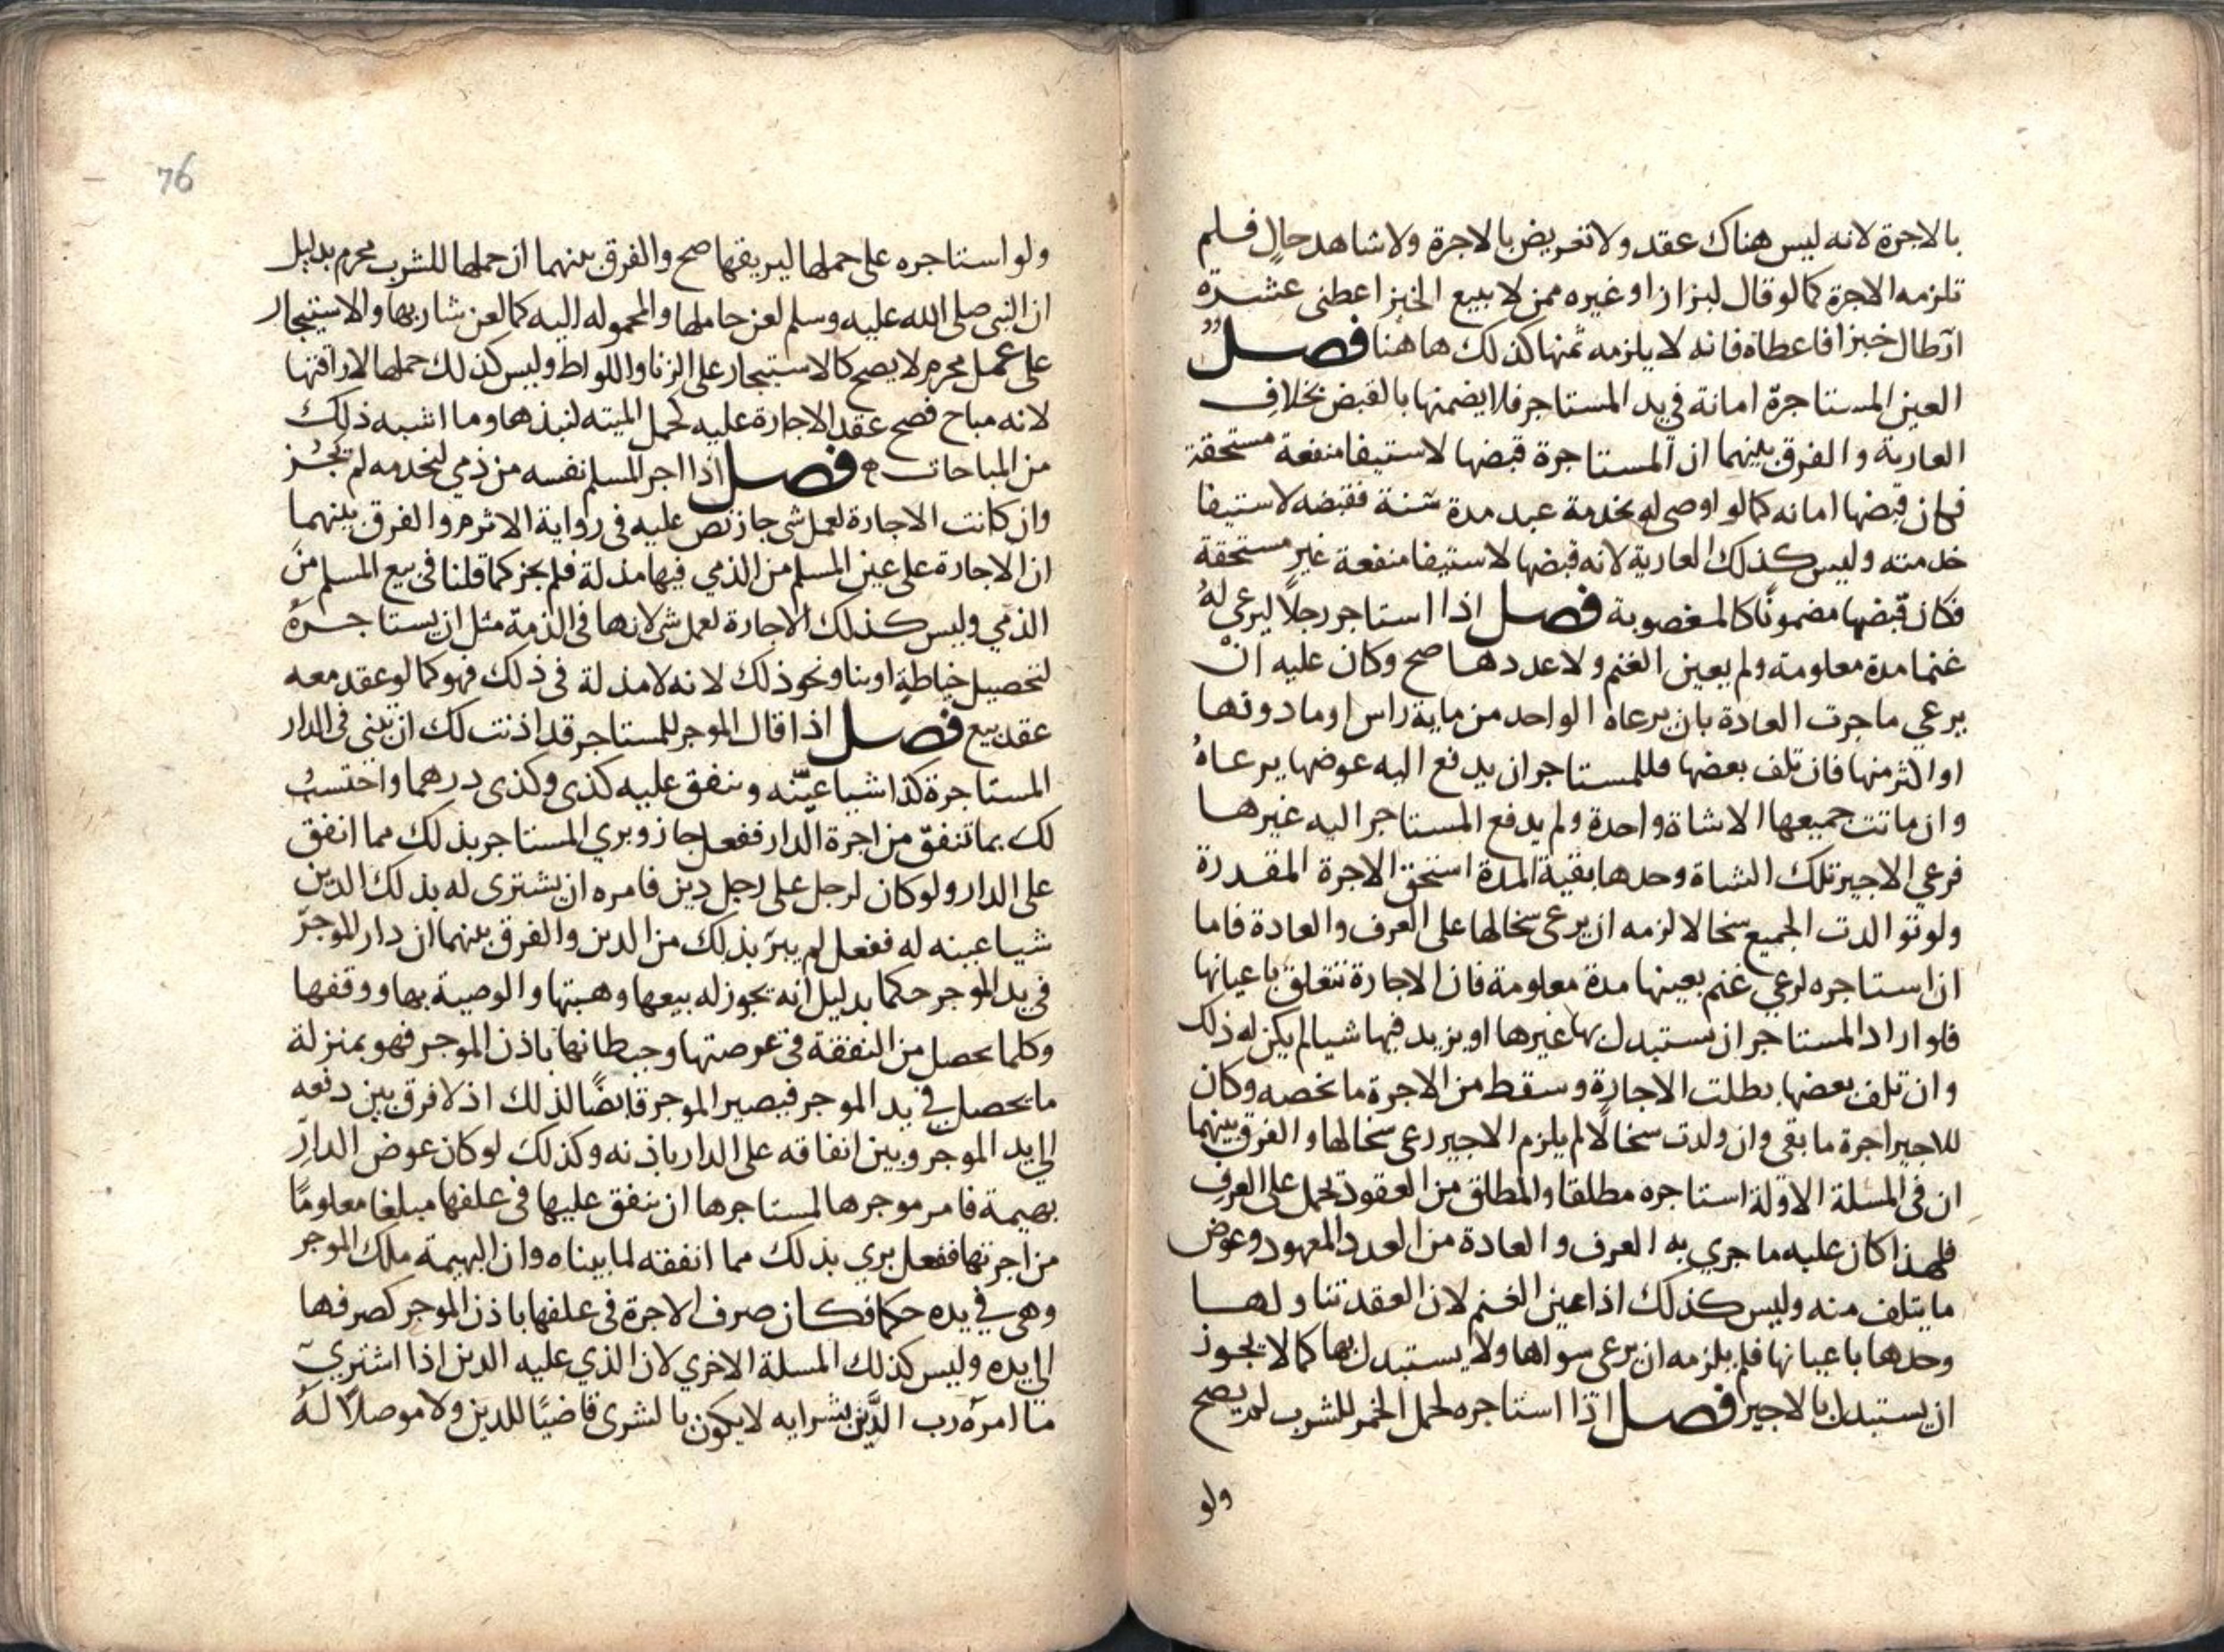 بالاجرة لانه ليس هناك عقد ولا تعريض بالاجرة ولا شاهد حال فلم
تلزمه الاجرة كما لو قال لبزاز او غيره ممن لا يبيع الخبز اعطنى عشرة
ارطال خبزا فاعطاه فانه لا يلزمه ثمنها كذلك هاهنا فصل
العين المستاجرة امانة في يد المستاجر فلا يضمنها بالقبض بخلاف
العارية والفرق بينهما ان المستاجرة قبضها لاستيفا منفعة مستحقة
فكان قبضها امانه كما لو اوصى له بخدمة عبد مدة سنة فقبضه لاستيفا
خدمته وليس كذلك العارية لانه قبضها لاستيفا منفعة غير مستحقة
فكان قبضها مضمونًا كالمغصوبة فصل اذا استاجر رجلًا ليرعى له
غنما مدة معلومة ولم يعين الغنم ولا عددها صح وكان عليه ان
يرعي ما جرت العادة بان يرعاه الواحد من ماية راس او ما دونها
او اكثر منها فان تلف بعضها فللمستاجر ان يدفع اليه عوضها يرعاه
وان ماتت جميعها الا شاة واحدة ولم يدفع المستاجر اليه غيرها
فرعى الاجير تلك الشاة وحدها بقية المدة استحق الاجرة المقدرة
ولو توالدت الجميع سخالا لزمه ان يرعى سخالها على العرف والعادة فاما
ان استاجره لرعي غنم بعينها مدة معلومة فان الاجارة تتعلق باعيانها
فلو اراد المستاجر ان يستبدل بها غيرها او يزيد فيها شيا لم يكن له ذلك
وان تلف بعضها بطلت الاجارة وسقط من الاجرة ما يخصه وكان
للاجير اجرة ما بقى وان ولدت سخالًا لم يلزم الاجير رعى سخالها والفرق بينهما
ان فى المسلة الاولة استاجره مطلقا والمطلق من العقود يحمل على العرف
فلهذا كان عليه ما جري به العرف والعادة من العدد المعهود وعوض
ما يتلف منه وليس كذلك اذا عين الغنم لان العقد تناولها
وحدها باعيانها فلم يلزمه ان يرعى سواها ولا يستبدل بها كما لا يجوز
ان يستبدل بالاجير فصل اذا استاجره لحمل الخمر للشرب لم يصح
ولو
76
ولو استاجره على حملها ليريقها صح والفرق بينهما ان حملها للشرب محرم بدليل
ان النبى صلى الله عليه وسلم لعن حاملها والمحموله اليه كما لعن شاربها والاستيجار
على عمل محرم لا يصح كالاستيجار على الزنا واللواط وليس كذلك حملها لاراقتها
لانه مباح فصح عقد الاجارة عليه لحمل الميته لنبذها وما اشبه ذلك
من المباحات ه فصل اذا اجر المسلم نفسه من ذمي ليخدمه لم يجز
وان كانت الاجارة لعمل شى جاز نص عليه فى رواية الاثرم والفرق بينهما
ان الاجارة على عين المسلم من الذمي فيها مذلة فلم يجز كما قلنا فى بيع المسلم من
الذمي وليس كذلك الاجارة لعمل شى لانها فى الذمة مثل ان يستاجره
لتحصيل خياطةٍ او بنا ونحو ذلك لانه لا مذلة فى ذلك فهو كما لو عقد معه
عقد بيع فصل اذا قال الموجر للمستاجر قد اذنت لك ان تبنى فى الدار
المستاجرة كذا شيا عيّنه وينفق عليه كذى وكذى درهما واحتسبُ
لك بما تنفق من اجرة الدار ففعل جاز وبري المستاجر بذلك مما انفق
على الدار ولو كان لرجل على رجل دين فامره ان يشترى له بذلك الدين
شيا عينه له ففعل لم يبر بذلك من الدين والفرق بينهما ان دار الموجر
في يد الموجر حكما بدليل انه يجوز له بيعها وهبتها والوصية بها ووقفها
وكلما يحصل من النفقة فى عرصتها وحيطانها باذن الموجر فهو بمنزلة
ما يحصل في يد الموجر فيصير الموجر قابضًا لذلك اذ لا فرق بين دفعه
الى يد الموجر وبين انفاقه على الدار باذنه وكذلك لو كان عوض الدار
بهيمة فامر موجرها لمستاجرها ان ينفق عليها فى علفها مبلغا معلومًا
من اجرتها ففعل بري بذلك مما انفقته لما بيناه وان البهيمة ملك الموجر
وهى في يده حكما فكان صرف الاجرة فى علفها باذن الموجر كصرفها
الى يده وليس كذلك المسلة الاخري لان الذي عليه الدين اذا اشتري
ما امره رب الدَّين بشرايه لا يكون بالشرى قاضيًا للدين ولا موصلًا له